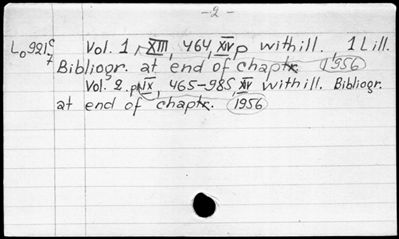 -2-
Lo921c/7 Vol. 1, XIII, 464, XIV p with ill. 1 L ill.
Bibliogr. at end of chaptr. 1956
Vol. 2. p IX, 465-985, XIV with ill. Bibliogr.
at end of chaptr. 1956